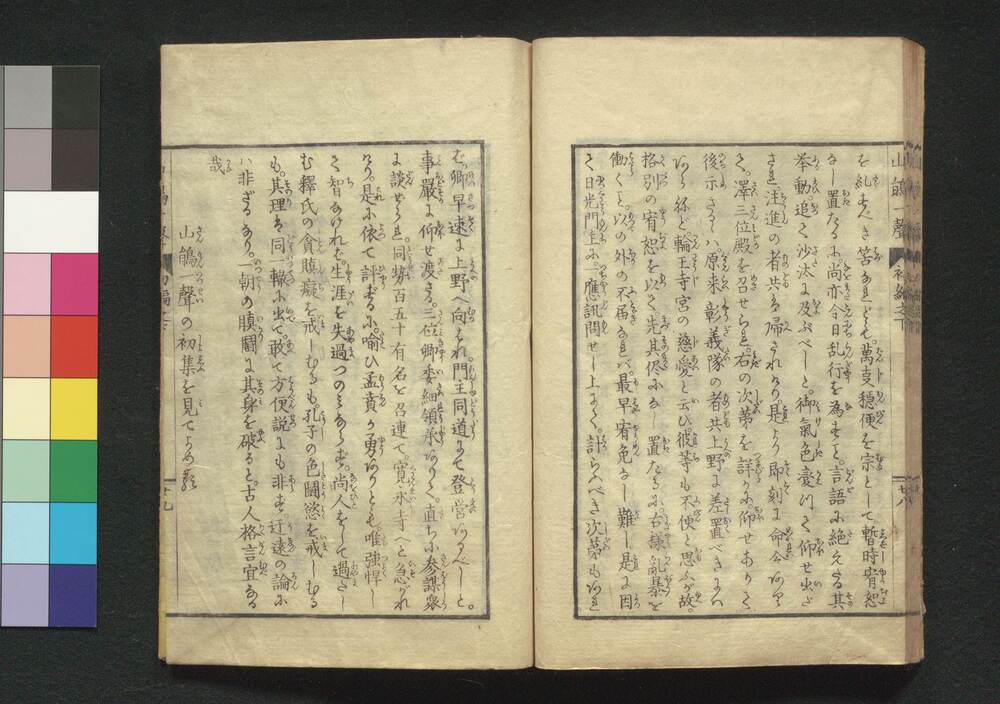 山鵲一聲 初編之下
を糺すべき筈なれども。萬事穏便を宗として暫時宥恕
なし置たるに。尚亦今日乱行を為すと。言語に絶えたる其
挙動追々沙汰に及ぶべしと。御氣色憂
注進の者共を帰されけり。是より即刻に命令
澤三位殿を召せられ。右の次第を詳かに。仰せありて
後示さるゝハ。原来彰義隊の者共上野に差置べきにハ
あらねど。輪王寺宮の慈愛と云ひ彼等も不便と思ふが故。
格別の宥恕を以て。先其侭になし置たるに。右様乱暴を
働くと。以の外の不届なれバ。最早宥免なし難し是に因
て日光門主に一應訊問せし上にて。計らふべき次第もあれ
廿八
ば。卿早速に上野へ向はれ。門主同道にて登営あるべしと。
事嚴に仰せ渡さる。三位卿委細領承ありて。直ちに参謀衆
に談せられ。同勢百五十有名を召連て。寛永寺へと急がれ
けり。是に依て評ずるに。喩ひ孟賁が勇ありとも。唯強悍し
て智なければ。生涯を失過つのみならず。尚人をして過たし
む釋氏の貪瞋癡を戒しむるも。孔子の色闘慾を戒しむる
も。其理ハ同一轍に出て。敢て方便説にも非ず。迂遠の論に
ハ非ざるなり。一朝の瞋闘に其身を破ると。古人格言宜なる
哉
山鵲一聲の初集を見てよめる
十九